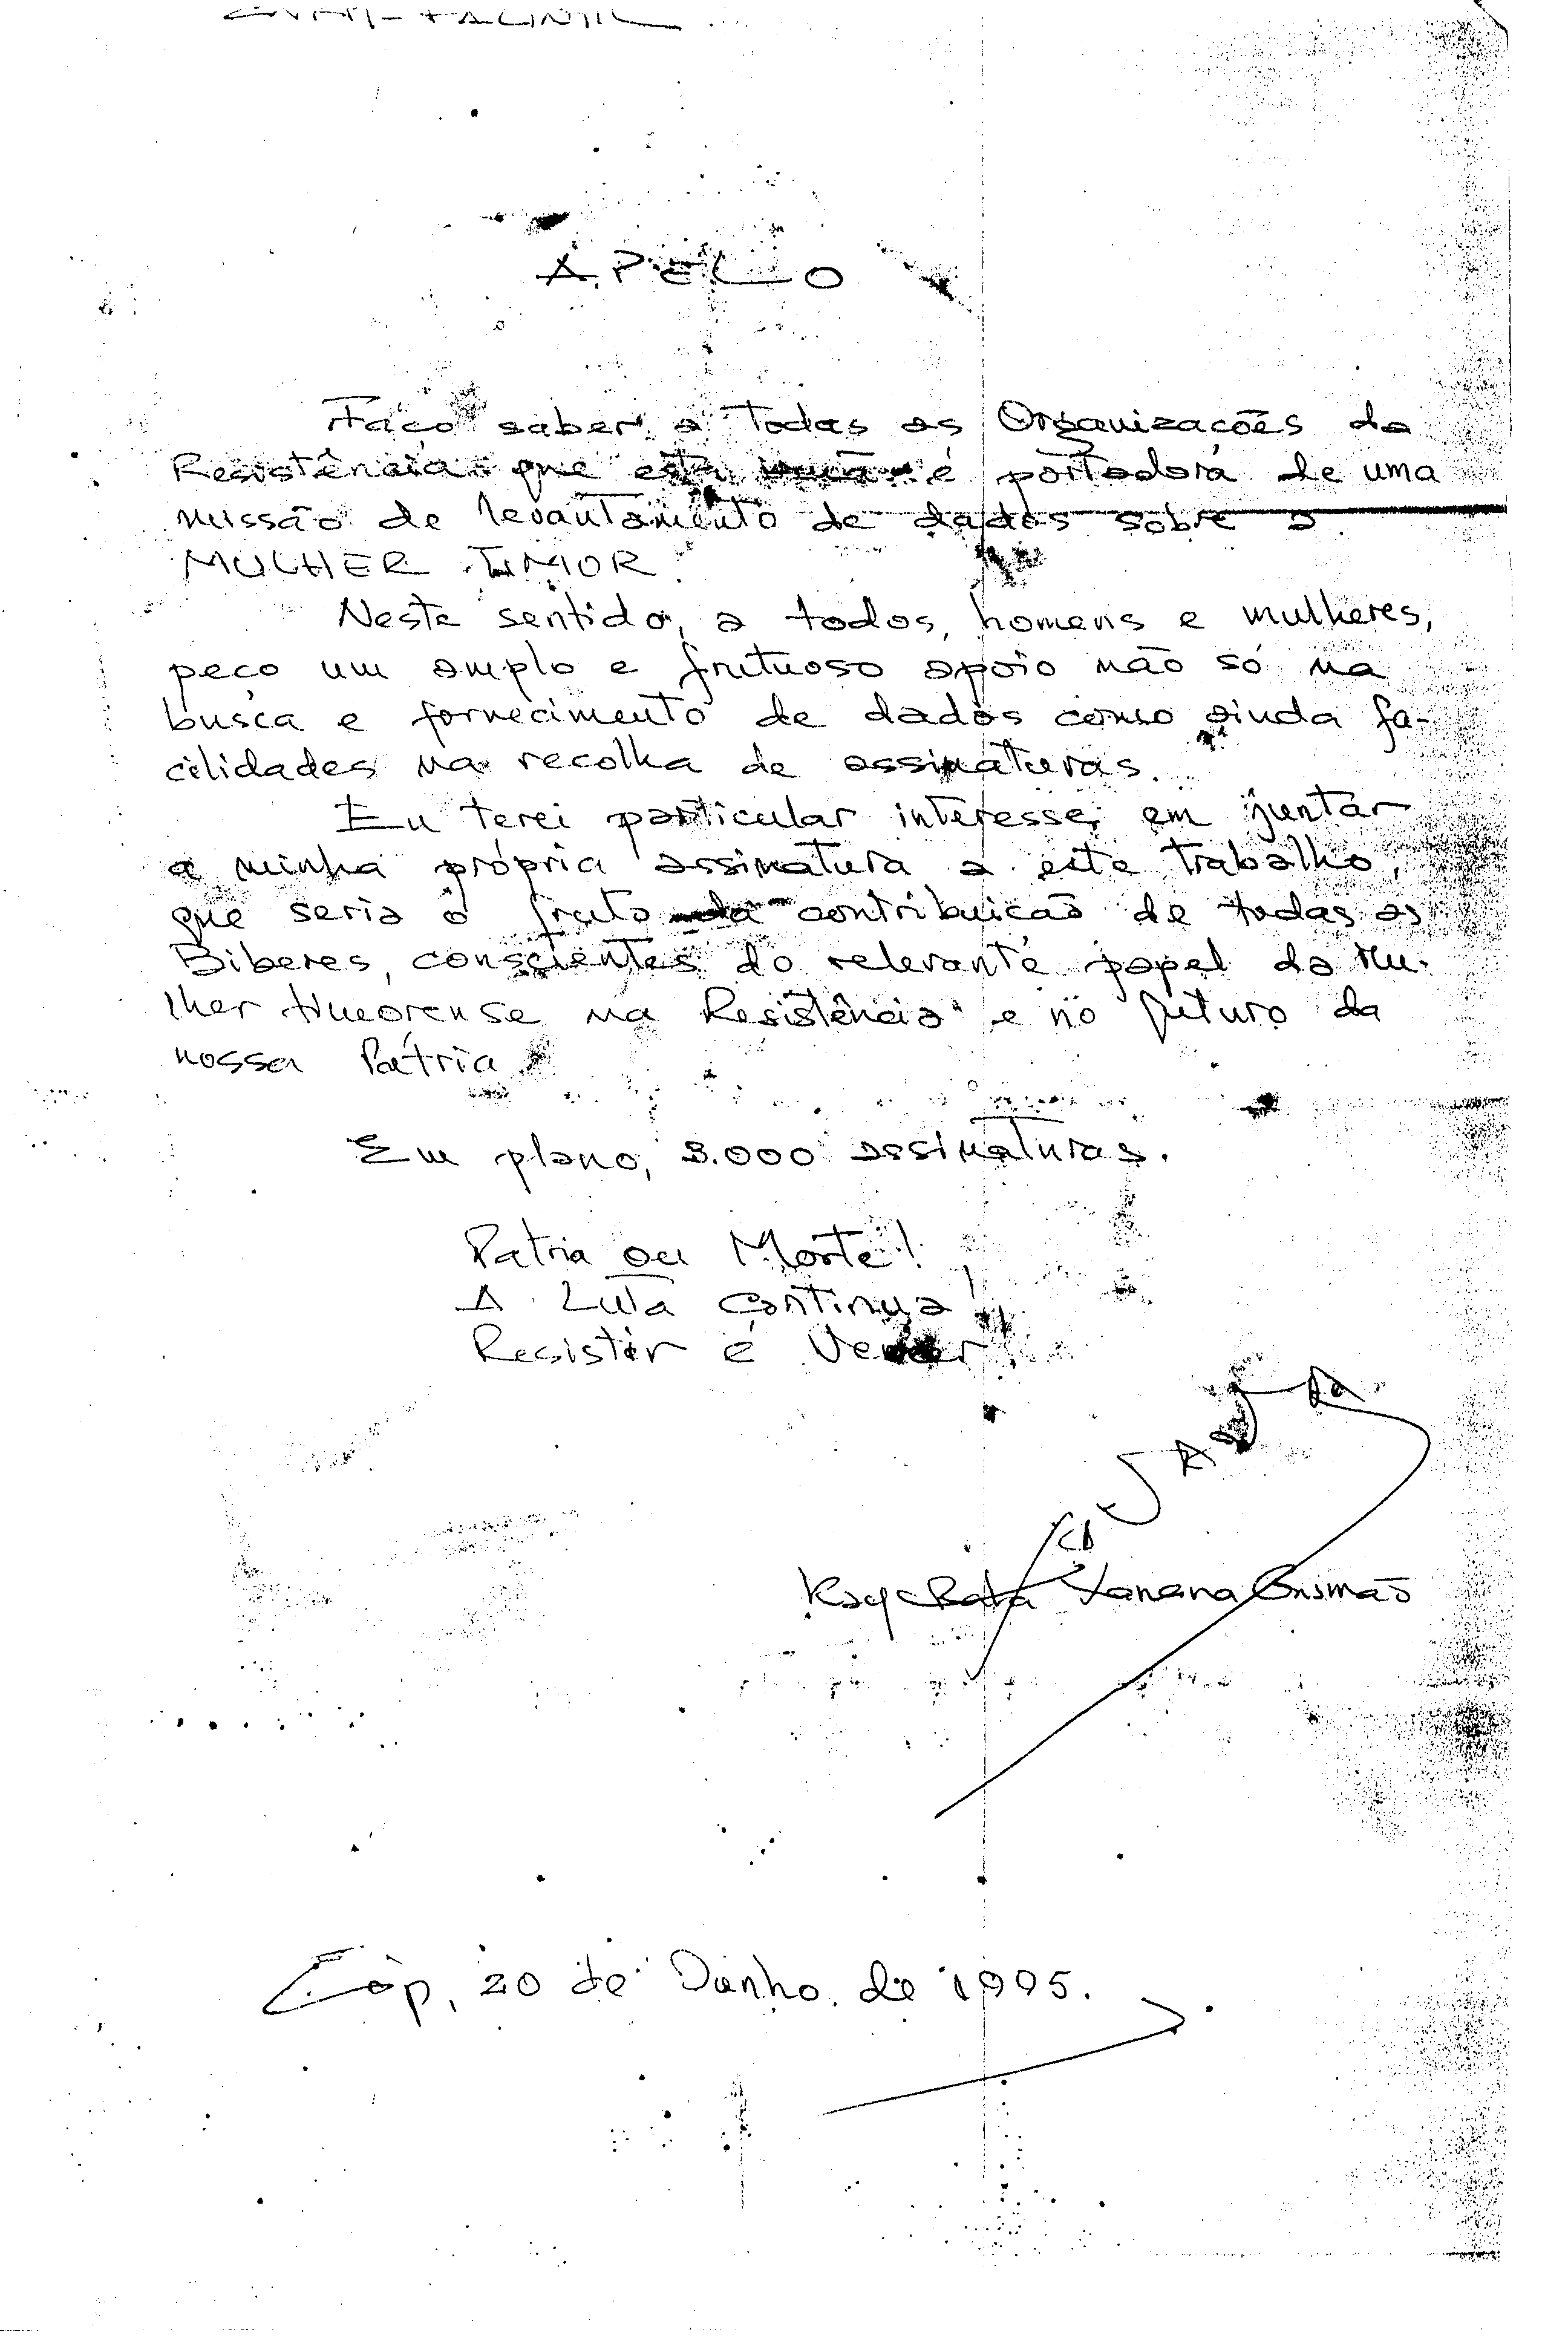 A P E L O
Faço saber a todas as Organizações da
Resistência que esta é portadora de uma
missão de levantamento de dados sobre a
MULHER TIMOR.
Neste sentido, a todos, homens e mulheres,
peço um amplo e frutuoso apoio não só na
busca e fornecimento de dados como ainda fa-
cilidades na recolha de assinaturas.
Eu terei particular interesse, em juntar
a minha própria assinatura a este trabalho,
que seria o fruto da contribuição de todas as
Biberes, conscientes do relevante papel da Mu-
lher timorense na Resistência e no futuro da
nossa Pátria.
Em plano, 3.000 assinaturas.
Patria ou Morte!
A Luta Continua!
Resistir é Vencer!
Kay Rala Xanana Gusmão
Cip, 20 de Junho de 1995.